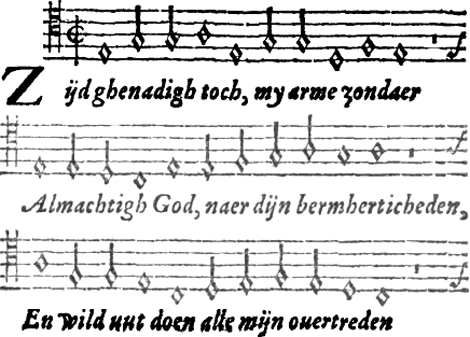 Zijd ghenadigh toch, my arme zondaer
Almachtigh God, naer dijn bermherticheden,
En wild uut doen alle mijn ouertreden